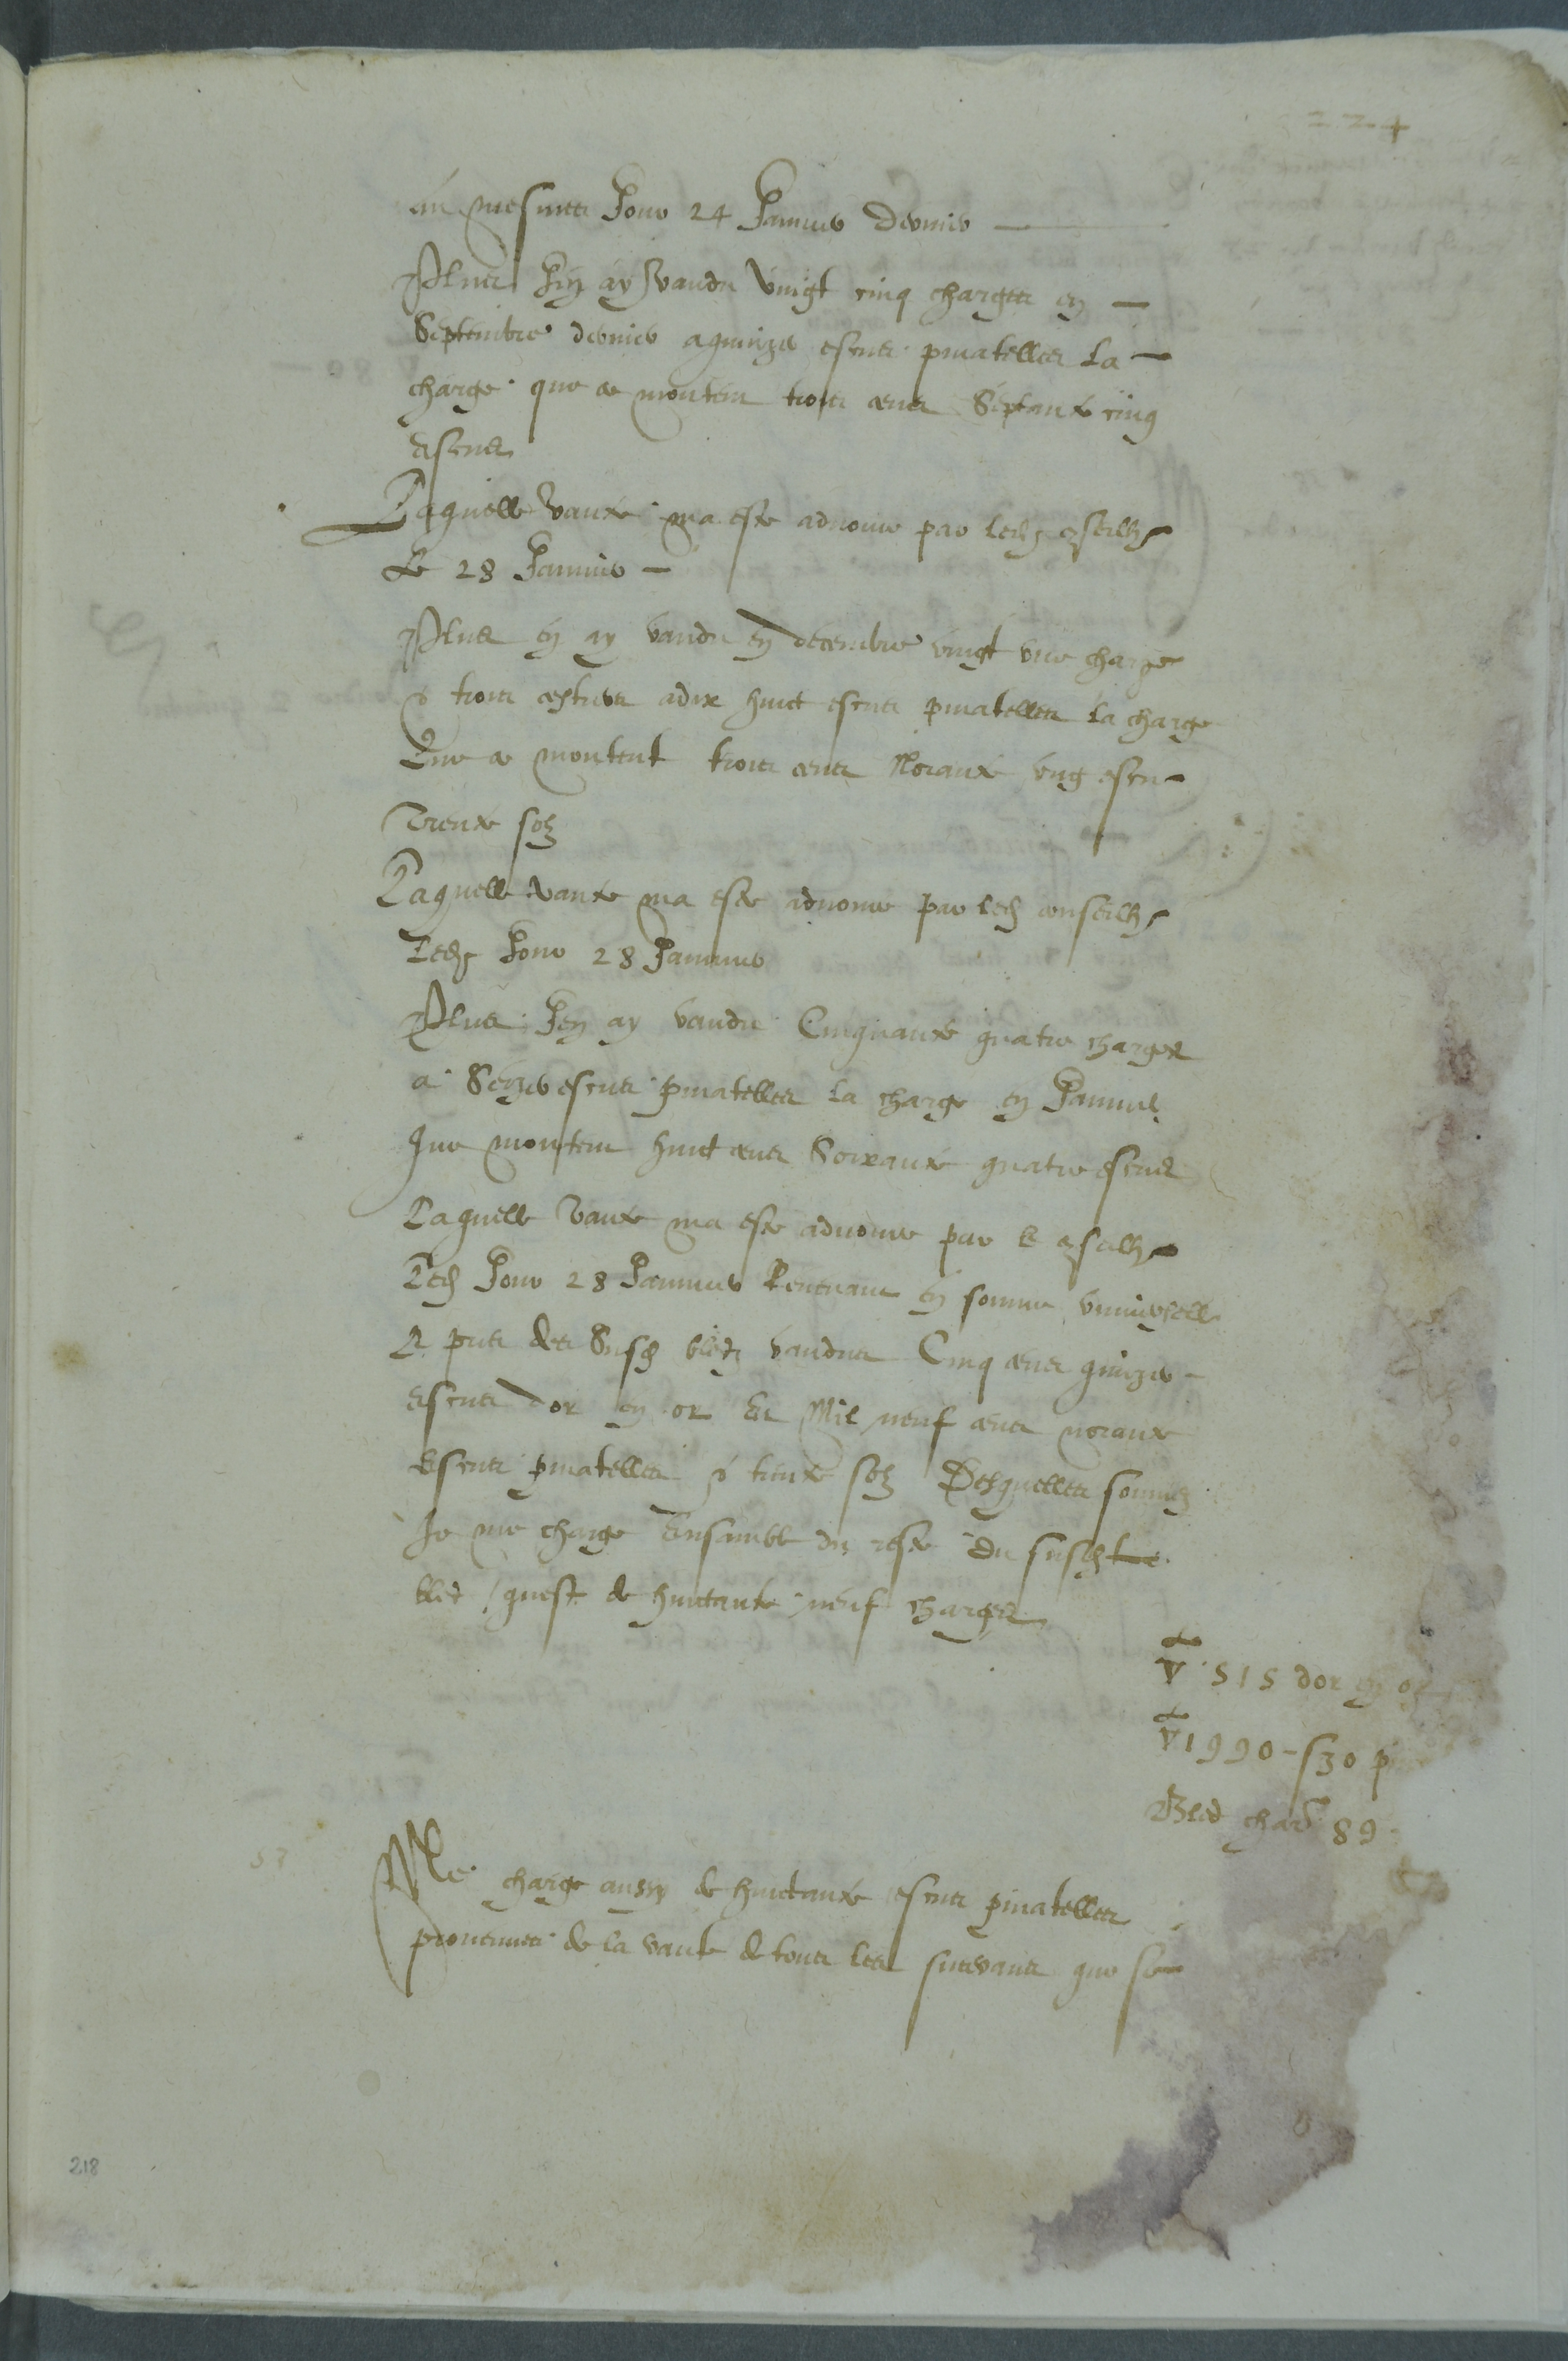 224
au mesmes Jour 24 Januier dernier
Plus Jen ay vandu vingt cinq charges en
Septembre dernier a quinze escus pinatelles la
charge que ce montent trois cens Septante cinq
escus
Laquelle vante ma este aduoue par led conseilh
Le 28 Januier
Plus en ay vandu en decembre vingt vne charge
& trois a dix huict escus pinatelles la charge
Que ce montent trois cens Noiante vng escu
Trente solz
Laquelle vante ma este aduoue par led conseilh
Led Jour 28 Januier
Plus Jen ay vandu Cinquante quatre charges
a Seize escus pinatelles la charge en Januier
Que montent huict cens Soixante quatre escus
Laquelle vante ma este aduoue par le conseilh
Led Jour 28 Januier Reuenant en somme vniuerselle
le pris des Susd bledz vandus Cinq cens quinze
escus dor en or Et Mil neuf cens noiante
Escus pinatelles & trente solz Desquelles sommes
Je me charge Ensamble du reste du susd
bled quest de huictante neuf charges
515 dor en or
1990 - s 30 p
Bled char 89
Me charge aussy de huictante escus pinatelles
prouenues de la vante de tous les que se
218